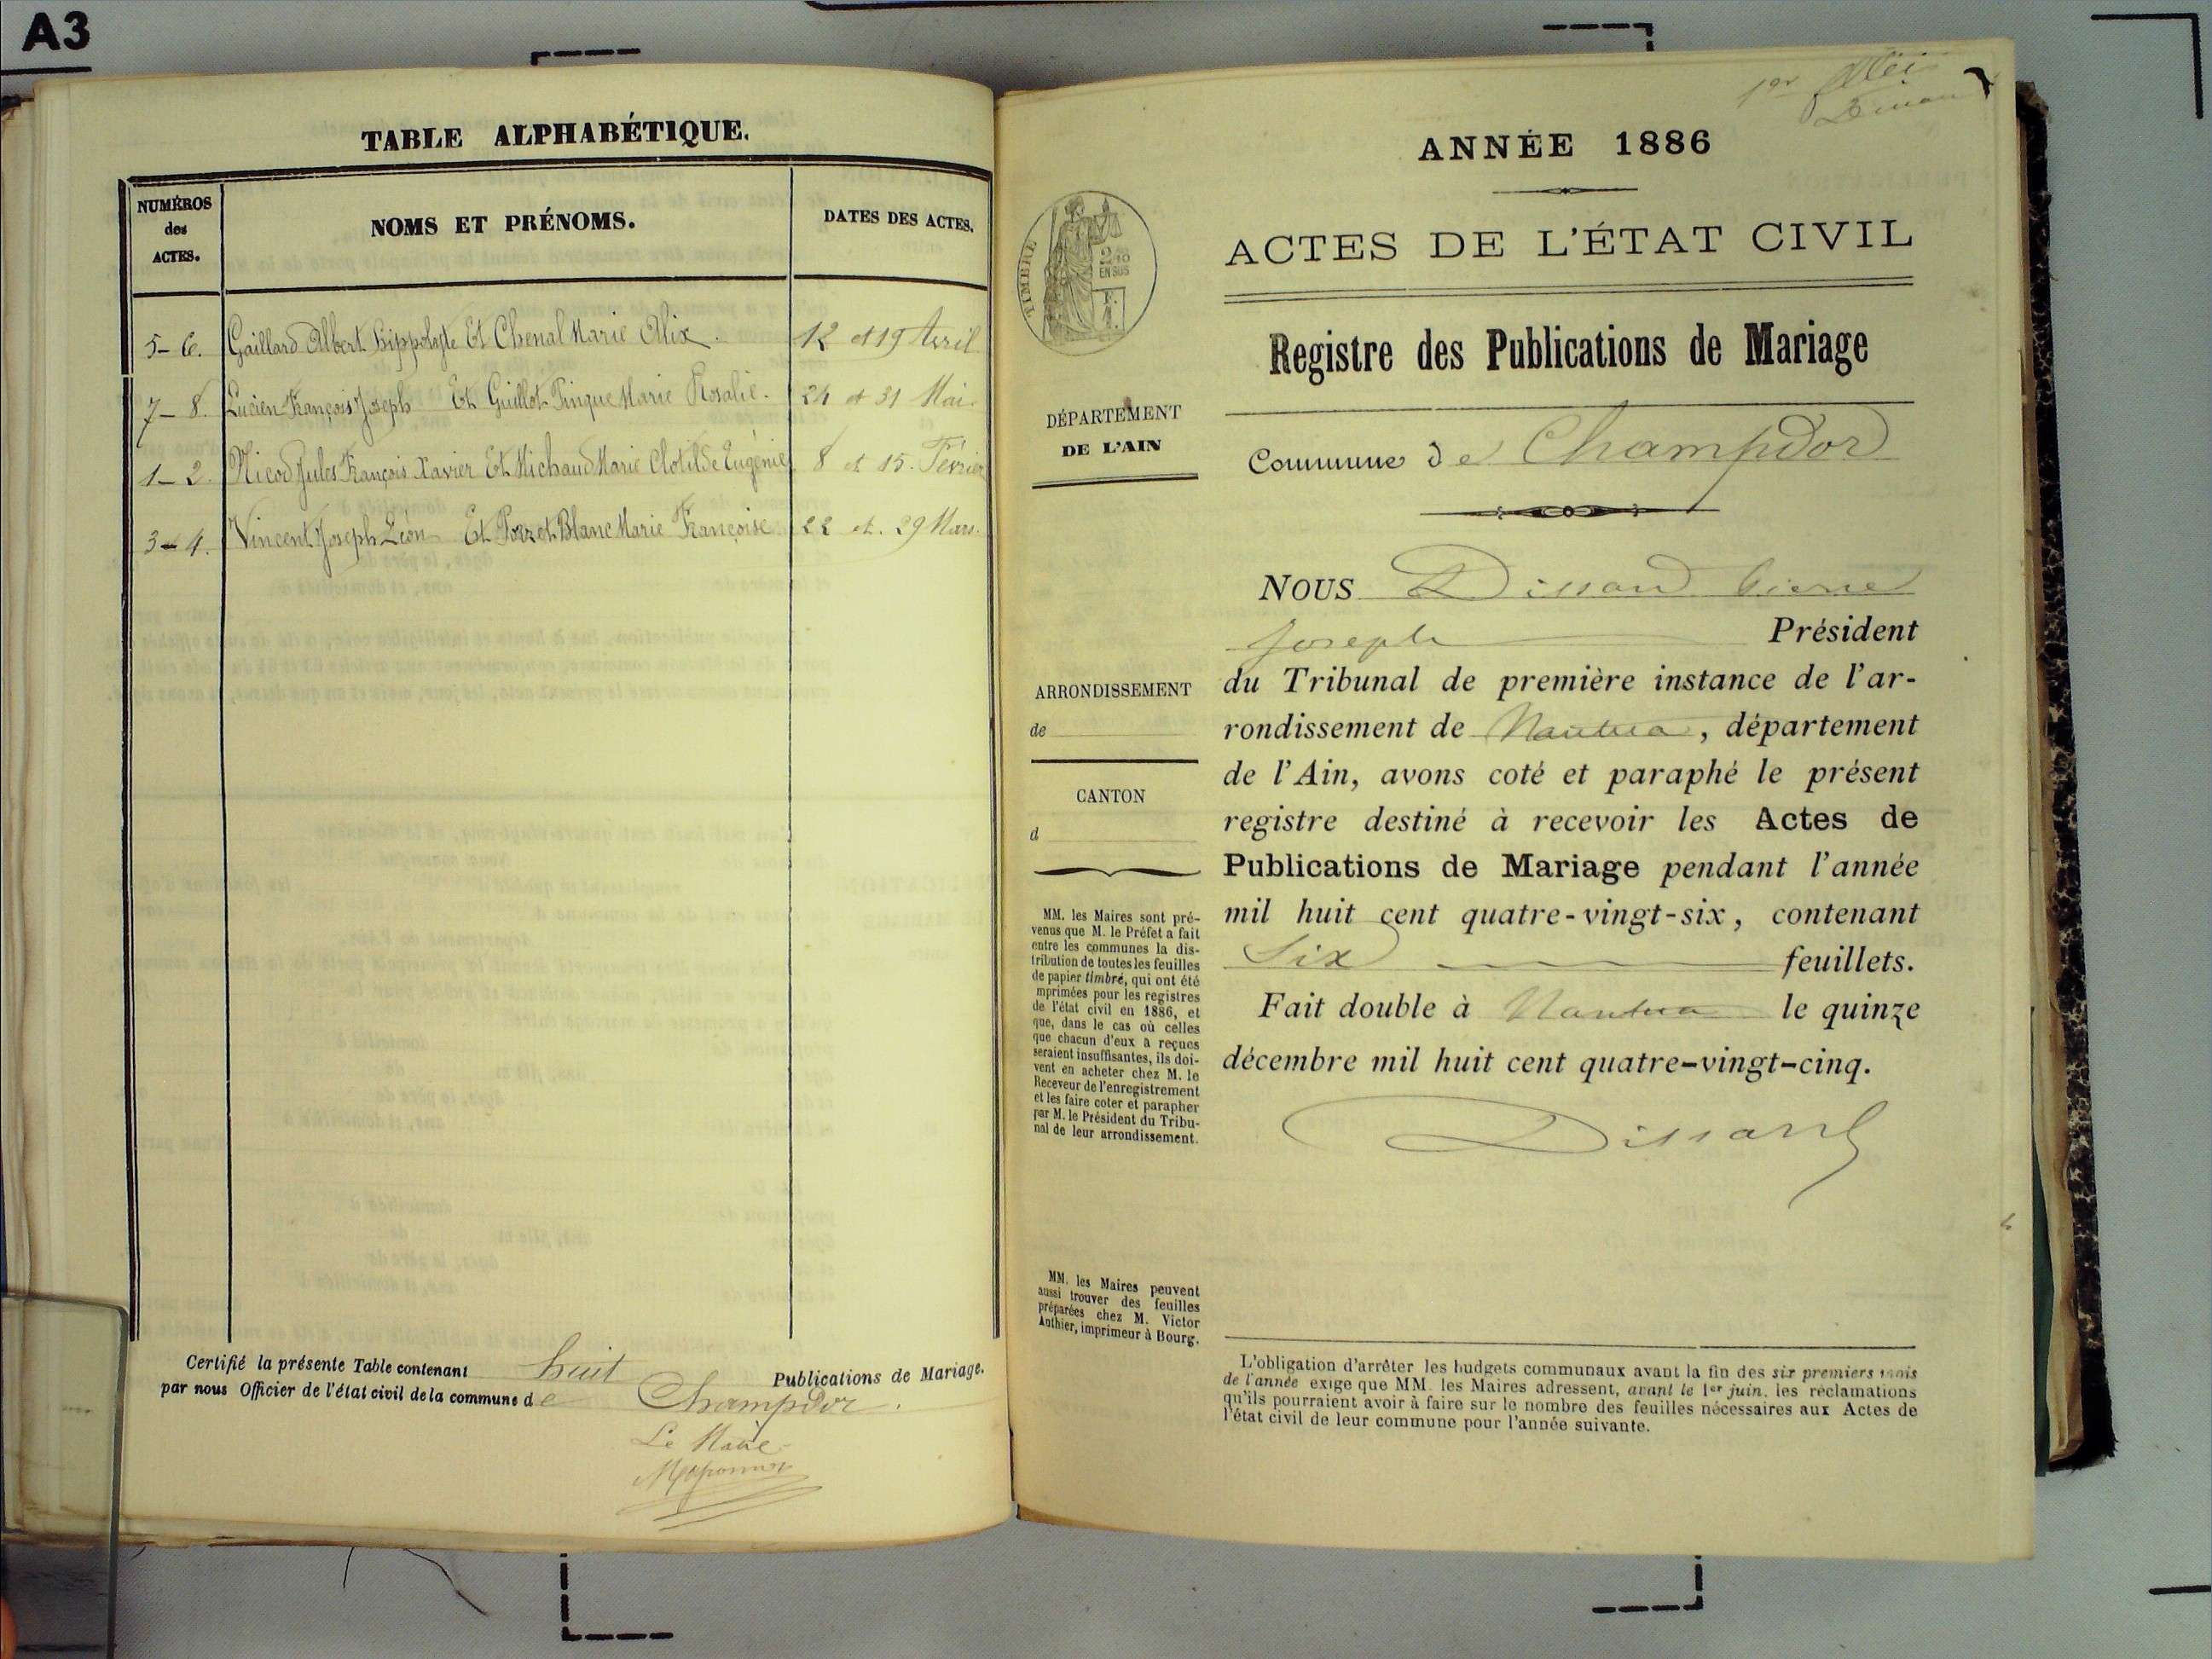 A3
TABLE ALPHABÉTIQUE.
NUMÉROS
des
ACTES.
NOMS ET PRÉNOMS.
DATES DES ACTES.
5-6. Gaillard Albert Hippolyte Et Chenal Marie Alix. 12 et 19 Avril
7-8. Lucien François Joseph Et Guillot Pinque Marie Rosalie. 24 et 31 Mai.
1-2. Nicod Jules François Xavier Et Michaud Marie Clotilde Eugénie 8 et 15. Février
3-4. Vincent Joseph Léon Et Poizet Blanc Marie Françoise. 22 et. 29 Mars.
Certifié la présente Table contenant huit Publications de Mariage.
par nous Officier de l'état civil de la commune de Champdor.
Le Maire
1er
ANNÉE 1886
TIMBRE
2/10
EN SUS
ACTES DE L'ÉTAT CIVIL
Registre des Publications de Mariage
DÉPARTEMENT
DE L'AIN
Commune de Champdor
NOUS Dissard Pierre
Joseph Président
du Tribunal de première instance de l'ar-
rondissement de Nantua, département
de l'Ain, avons coté et paraphé le présent
registre destiné à recevoir les Actes de
Publications de Mariage pendant l'année
mil huit cent quatre-vingt-six, contenant
Six feuillets.
Fait double à Nantua le quinze
décembre mil huit cent quatre-vingt-cinq.
Dissard
ARRONDISSEMENT
de
CANTON
d
MM. les Maires sont pré-
venus que M. le Préfet a fait
entre les communes la dis-
tribution de toutes les feuilles
de papier timbré, qui ont été
mprimées pour les registres
de l'état civil en 1886, et
que, dans le cas où celles
que chacun d'eux a reçues
seraient insuffisantes, ils doi-
vent en acheter chez M. le
Receveur de l'enregistrement
et les faire coter et parapher
par M. le Président du Tribu-
nal de leur arrondissement.
MM. les Maires peuvent
aussi trouver des feuilles
préparées chez M. Victor
Authier, imprimeur à Bourg.
L'obligation d'arrêter les budgets communaux avant la fin des six premiers mois
de l'année exige que MM. les Maires adressent, avant le 1er juin, les réclamations
qu'ils pourraient avoir à faire sur le nombre des feuilles nécessaires aux Actes de
l'état civil de leur commune pour l'année suivante.